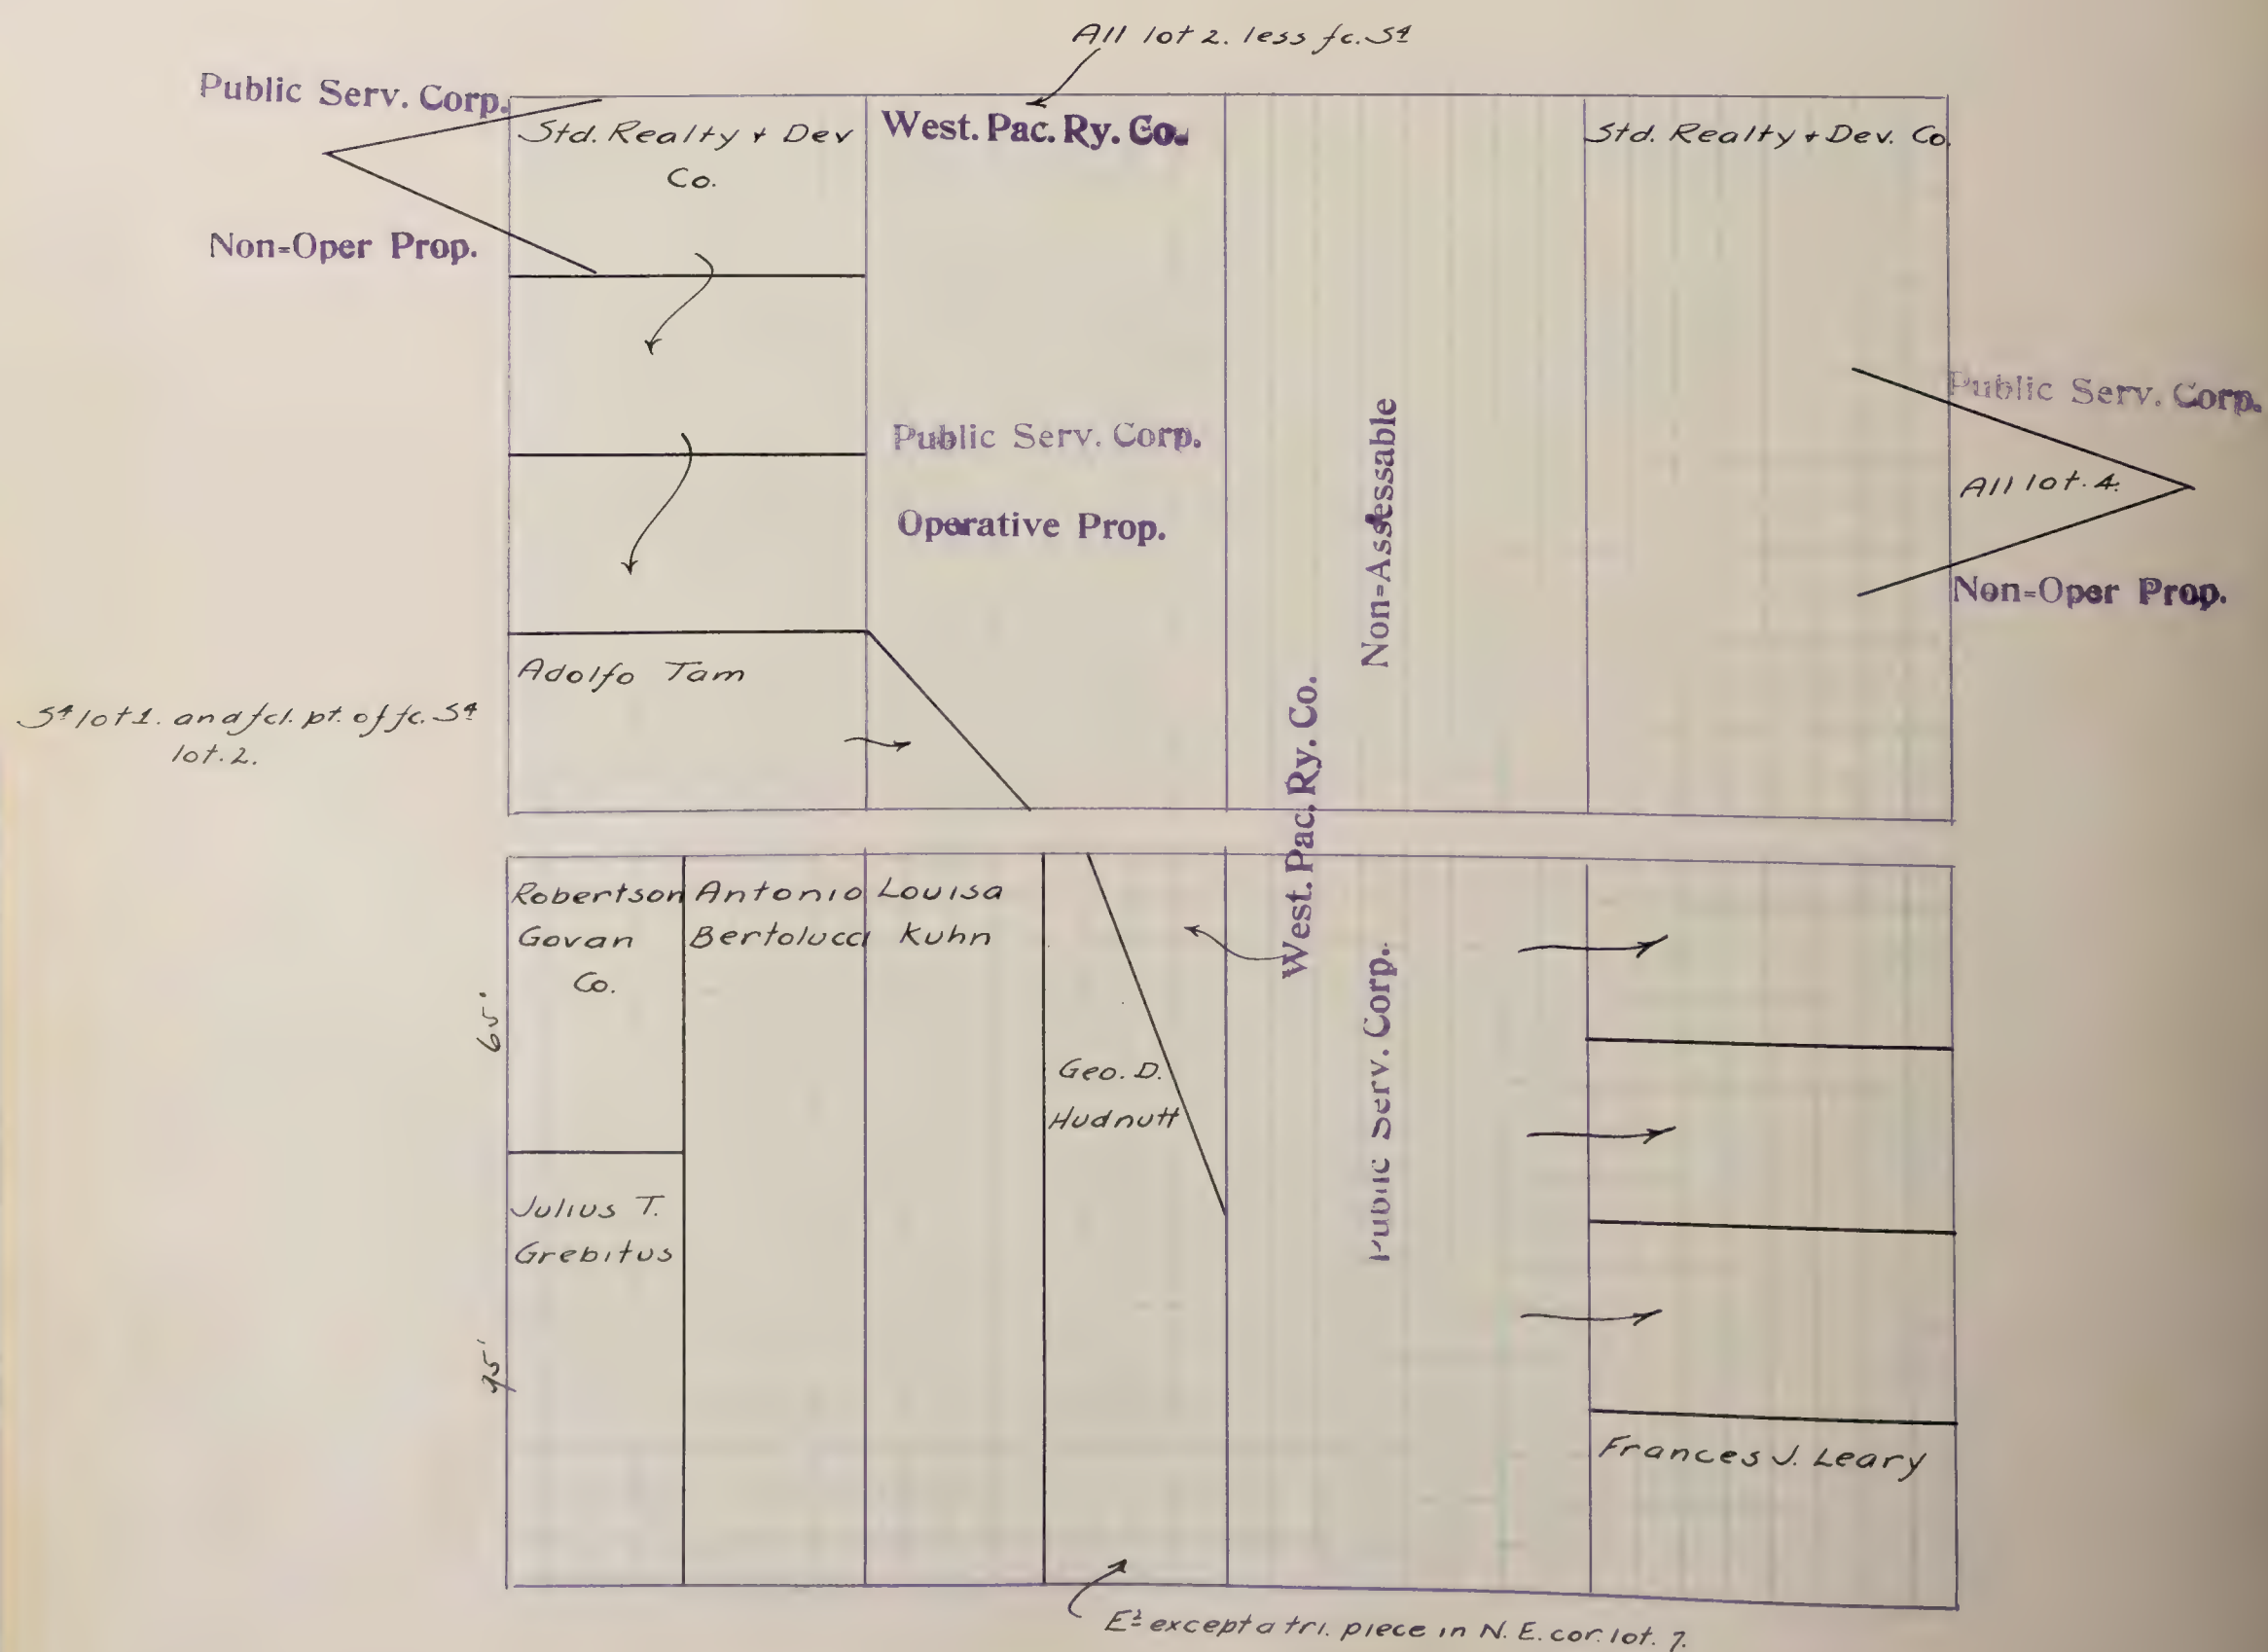 All lot 2. less fc. S4
Public Serv. Corp.
Non=Oper Prop.
Std. Realty + Dev
Co.
West. Pac. Ry. Co.
Std. Realty + Dev. Co.
Public Serv. Corp.
Operative Prop.
Non=Assessable
Public Serv. Corp.
All lot. 4.
Non=Oper Prop.
Adolfo Tam
S4 lot 1. and fcl. pt. of fc. S4
lot. 2.
West. Pac. Ry. Co.
Robertson
Govan
Co.
Antonio
Bertolucci
Louisa
Kuhn
65'
Geo. D.
Hudnutt
Public Serv. Corp.
Julius T.
Grebitus
95'
Frances J. Leary
E2 except a tri. piece in N. E. cor. lot. 7.